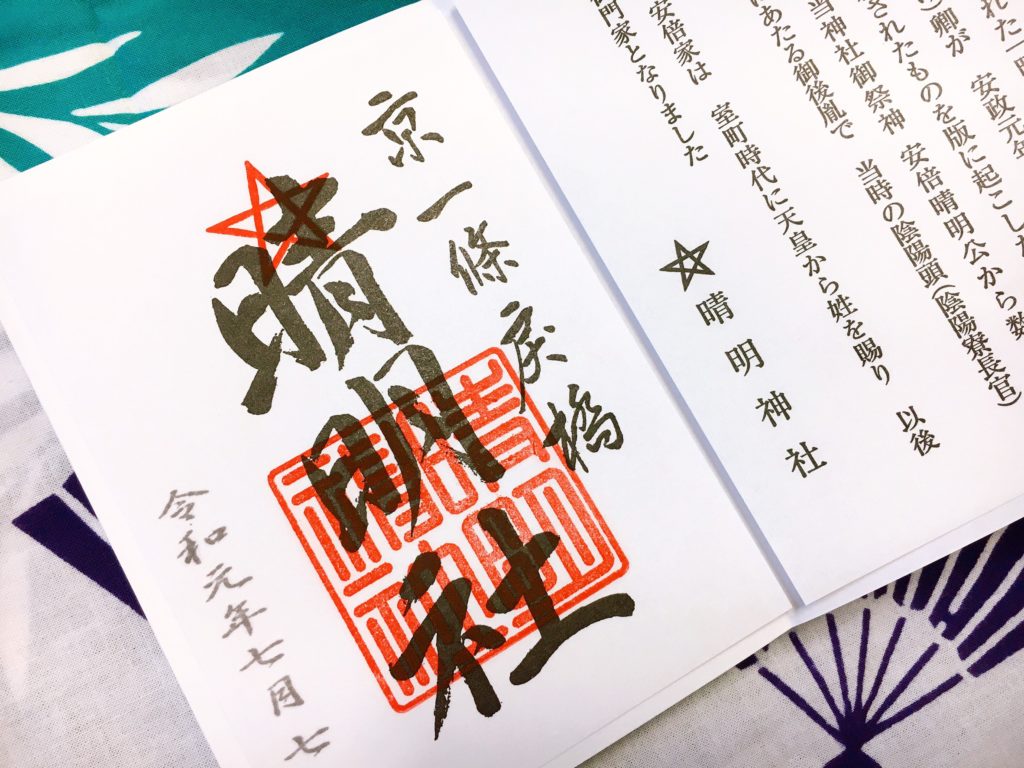 れた一
卿が 安政元年
されたものを版に起こした
当神社御祭神 安倍晴明公から数
あたる御後胤で 当時の陰陽頭(陰陽寮長官)
安倍家は 室町時代に天皇から姓を賜り 以後
門家となりました
晴明神社
京一條戻橋
晴明社
令和元年七月七